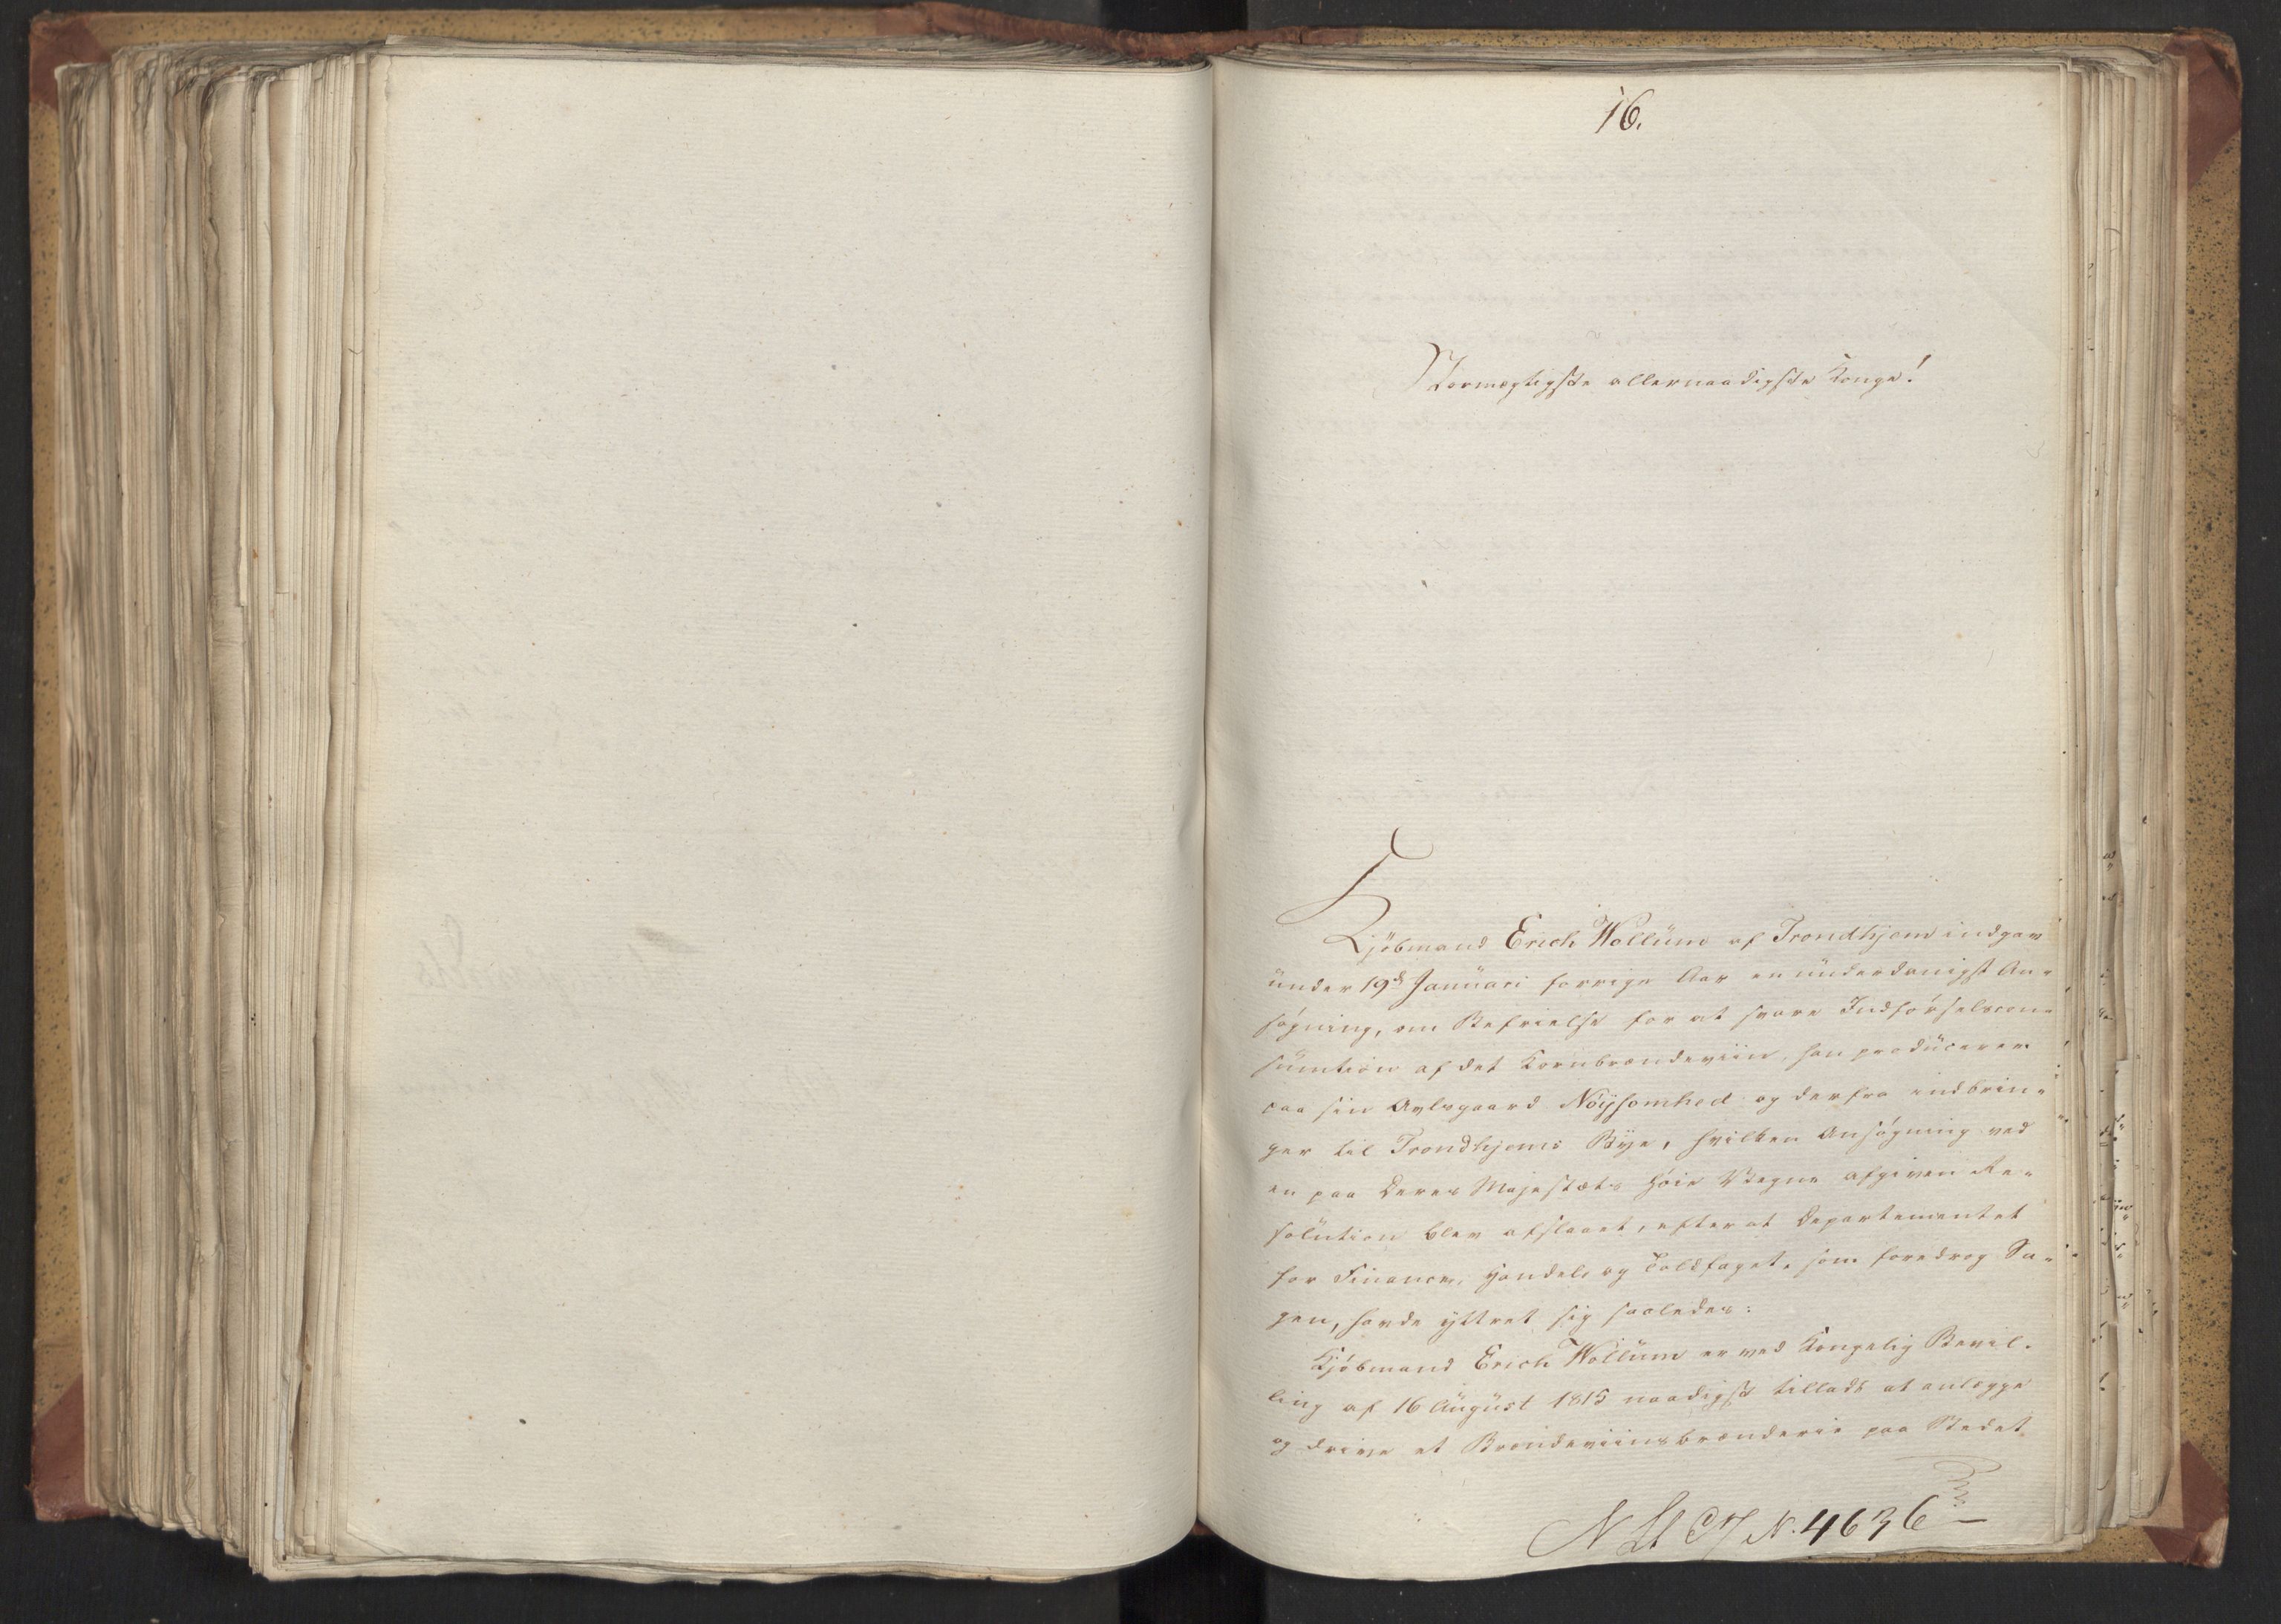 16.
Stormægtigste allernaadigste Konge!
Kjöbmand Erich Wollüm af Trondhjem indgav
ünder 19de Janüari forrige Aar en ünderdanigst An-
sögning, om Befrielse for at svare Indförselscon-
sümtion af det Kornbrændeviin, han prodücerer
paa sin Avlsgaard Nöysomhed og derfra indbrin-
ger til Trondhjems Bye, hvilken Ansögning ved
en paa Deres Majestæts Höie Vegne afgiven Re-
solütion blev afslaaet, efterat Departementet
for Finance, Handels og Toldfaget, som foredrog Sa-
gen, havde yttret sig saaledes:
Kjöbmand Erich Wollüm er ved Kongelig Bevil-
ling af 16 Aügüst 1815 naadigst tilladt at anlægge
og drive et Brændeviinsbrænderie paa Stedet
N St C J N. 4636